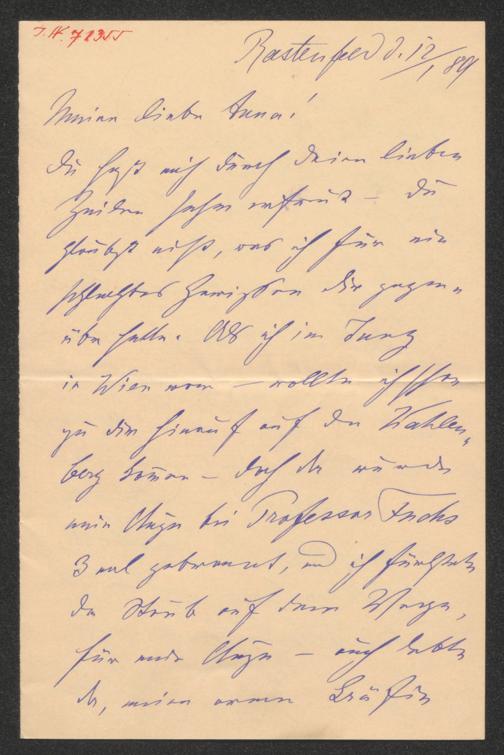 J.N. 72355
Rastenfeld d. 12/1 89
Meine liebe Anna!
Du hast mich durch deine lieben
Zeilen sehr erfreut – Du
glaubst nicht, was ich für ein
schlechtes Gewissen dir gegen-
über hatte. Als ich im Juny
in Wien war – wollte ich schon
zu dir hinauf auf den Kahlen-
berg kommen – doch da wurde
mein Auge bei Professor Fuchs
3 mal gebrannt, und ich fürchtete
den Staub auf dem Wege,
für mein Auge – auch lebte
da, meine arme Gräfin